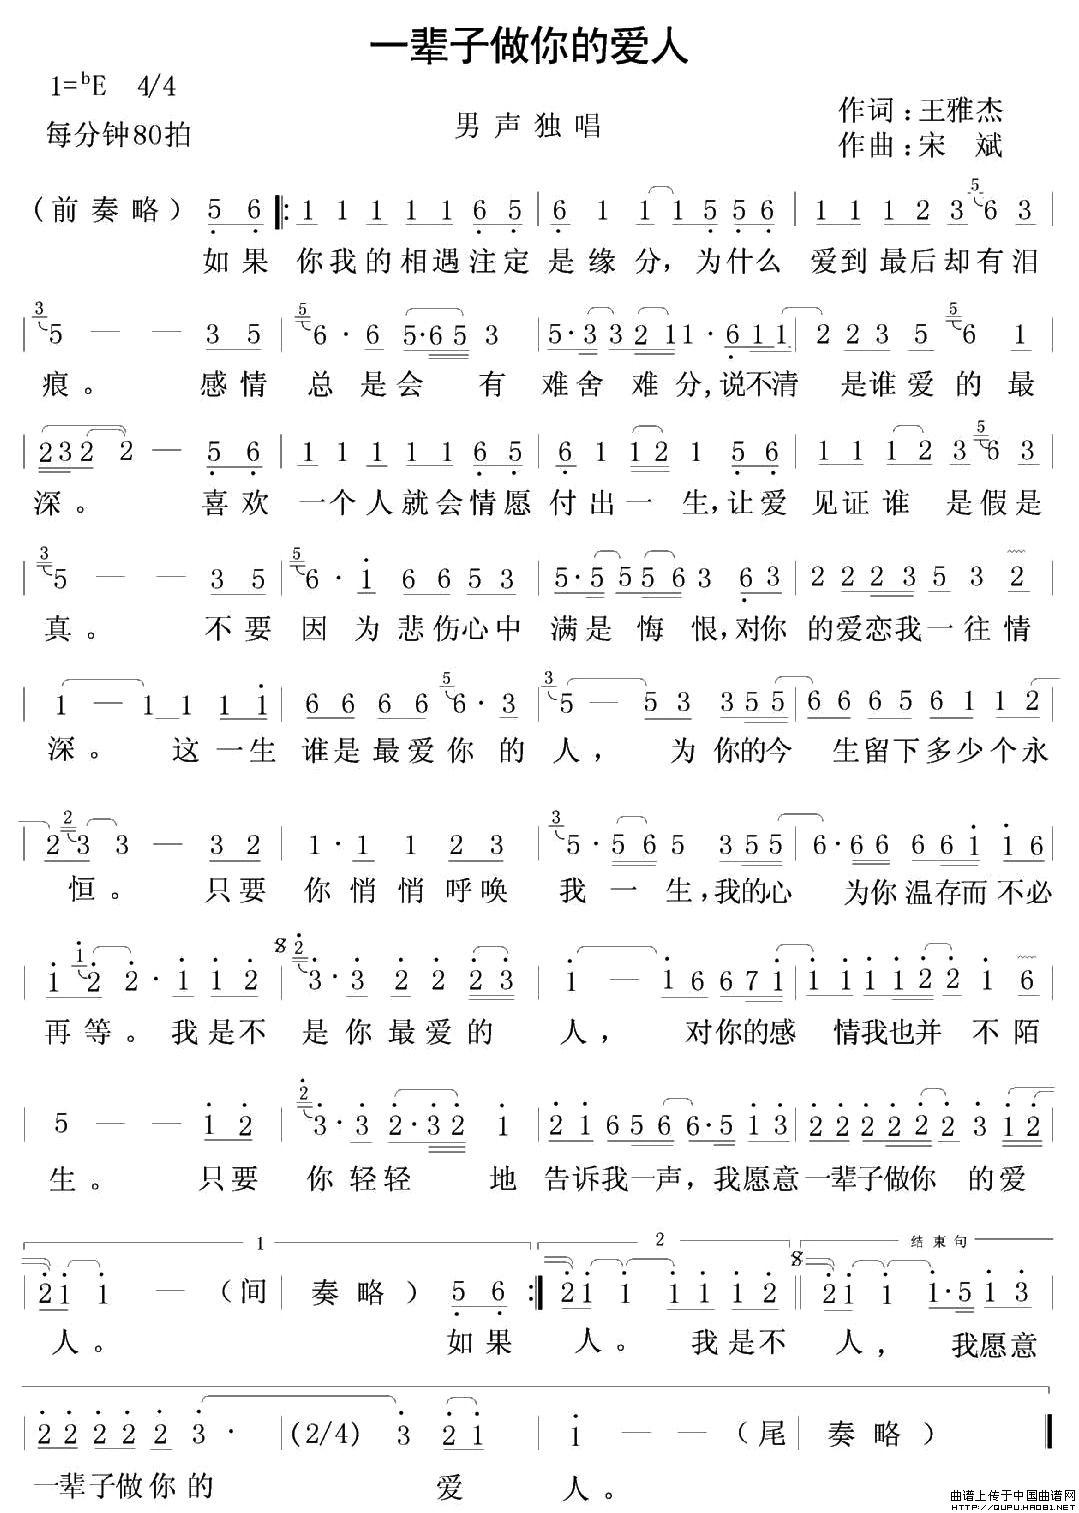 一辈子做你的爱人
1=ᵇE 4/4
每分钟80拍
男声独唱
作词:王雅杰
作曲:宋 斌
(前奏略) 5 6 1 1 1 1 1 6 5 6 1 1 1 5 5 6 1 1 1 2 3 5 6 3
如果 你我的相遇注定 是缘分,为什么 爱到最后却有泪
3 5 — — 3 5 5 6· 6 5·6 5 3 5·3 3 2 1 1 1·6 1 1 2 2 3 5 5 6 1
痕。 感情 总是会 有 难舍 难分,说不清 是谁爱的最
2 3 2 2 — 5 6 1 1 1 1 1 6 5 6 1 1 2 1 5 6 1 1 1 2 3 5 6 3
深。 喜欢 一个人就会情愿 付出一 生,让爱 见证谁 是假是
3 5 — — 3 5 5 6· 1 6 6 5 3 5·5 5 5 6 3 6 3 2 2 2 3 5 3 2
真。 不要 因为悲伤心中 满是 悔 恨,对你 的爱恋我一往情
1 — 1 1 1 1 6 6 6 6 5 6·3 3 5 — 5 3 3 5 5 6 6 6 5 6 1 1 2
深。 这一生 谁是最爱你的 人, 为 你的今 生留下多少个永
2 2 3 3 — 3 2 1· 1 1 2 3 3 5· 5 6 5 3 5 5 6·6 6 6 6 1 1 6
恒。 只要 你悄悄呼唤 我一生,我的心 为你温存而不必
1 1 2 2· 1 1 2 2 3·3 2 2 2 3 1 — 1 6 6 7 1 1 1 1 2 2 1 6
再等。我是不 是你最爱的 人, 对你的感 情我也并 不陌
5 — — 1 2 2 3·3 2·3 2 1 2 1 6 5 6 6·5 1 3 2 2 2 2 2 2 3 1 2
生。 只要 你轻轻 地 告诉我一声,我愿意一辈子做你 的爱
1 2 结束句
2 1 1 — (间 奏略) 5 6 2 1 1 1 1 1 2 2 1 1 1·5 1 3
人。 如果 人。 我是不 人, 我愿意
2 2 2 2 2 3· (2/4) 3 2 1 1 — — (尾 奏略)
一辈子做你的 爱 人。
曲谱上传于中国曲谱网
HTTP://QUPU.HAO81.NET